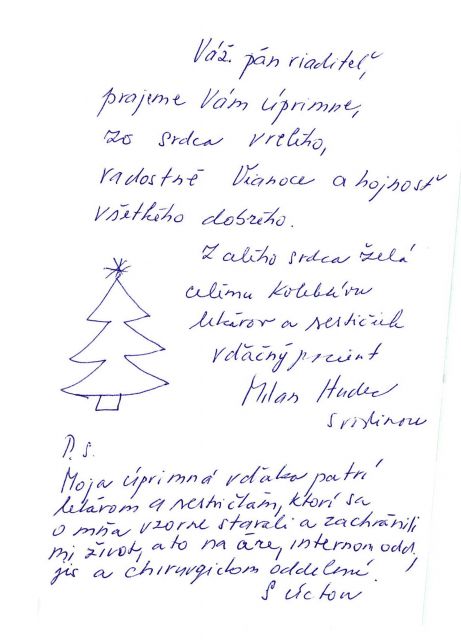 Váž. pán riaditeľ,
prajeme Vám úprimne,
zo srdca vrelého,
radostné Vianoce a hojnosť
všetkého dobrého.
Z celého srdca želá
celému kolektívu
lekárov a sestričiek
vďačný pacient
Milan Hudec
s rodinou
P.S.
Moja úprimná vďaka patrí
lekárom a sestričkám, ktorí sa
o mňa vzorne starali a zachránili
mi život, a to na áre, internom odd.,
jis a chirurgickom oddelení.
S úctou